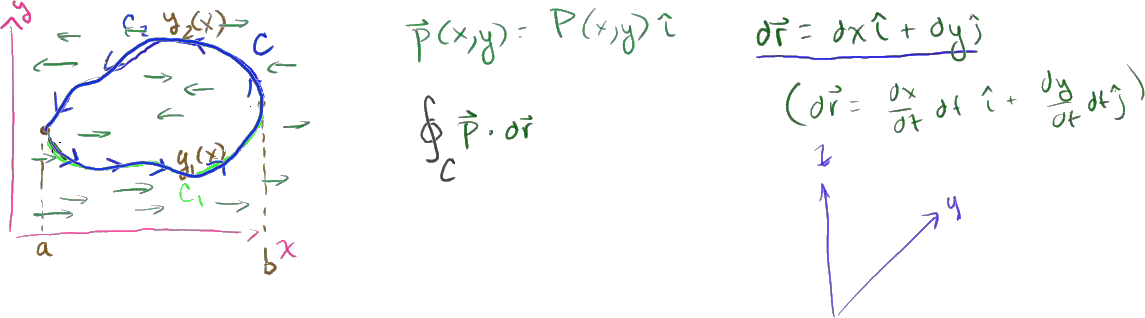 y
C₂ y₂(x) C
y₁(x)
C₁
a
b
x
p⃗(x,y) = P(x,y) î
∮_C p⃗ · dr⃗
dr⃗ = dx î + dy ĵ
(dr⃗ = dx/dt dt î + dy/dt dt ĵ)
z
y